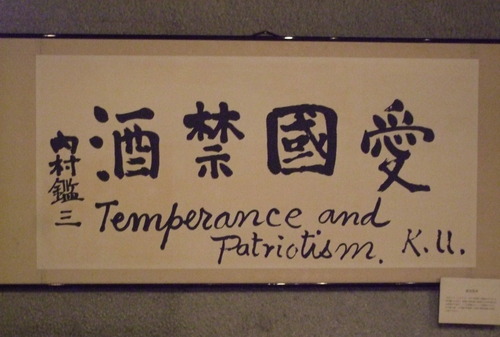 愛國禁酒
Temperance and
Patriotism. K.U.
内村鑑三